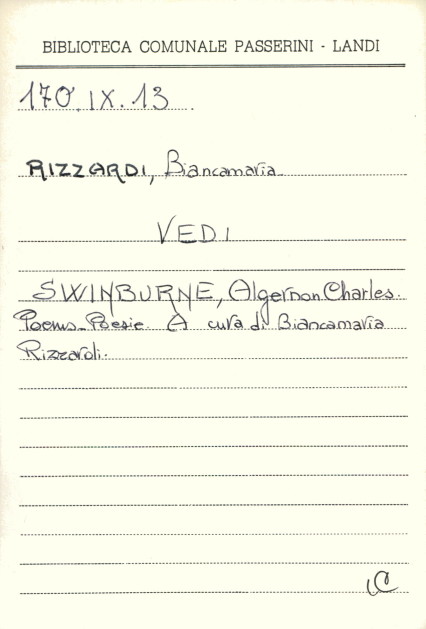 BIBLIOTECA COMUNALE PASSERINI - LANDI
170.IX.13
RIZZARDI, Biancamaria
VEDI
SWINBURNE, Algernon Charles.
Poems-Poesie. A cura di Biancamaria
Rizzardi.